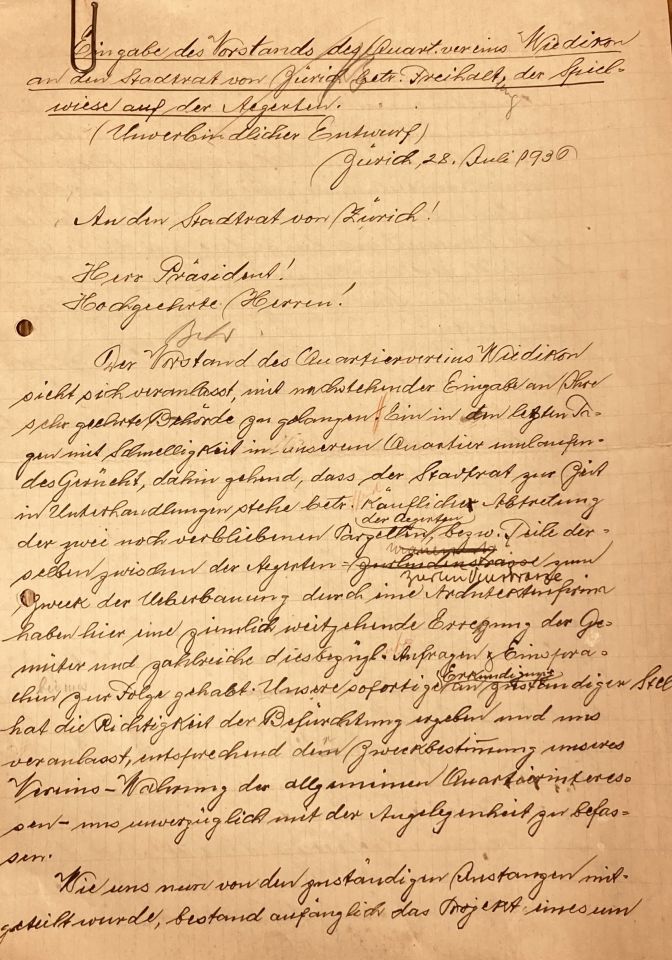 Eingabe des Vorstands des Quart.vereins Wiedikon
an den Stadtrat von Zürich betr. Freihaltung der Spiel-
wiese auf der Aegerten.
(Unverbindlicher Entwurf)
Zürich, 28. Juli 1936
An den Stadtrat von Zürich!
Herr Präsident!
Hochgeehrte Herren!
Der Vorstand des Quartiervereins Wiedikon
sieht sich veranlasst, mit nachstehender Eingabe an Ihre
sehr geehrte Behörde zu gelangen. Ein in den letzten Ta-
gen mit Schnelligkeit in unserem Quartier umlaufen-
des Gerücht, dahin gehend, dass der Stadtrat zur Zeit
in Unterhandlungen stehe betr. käuflicher Abtretung
der Aegerten
der zwei noch verbliebenen Parzellen, bezw. Teile der-
selben zwischen der Aegerten- Zurlindenstrasse zum
Zurlindenstrasse
Zweck der Ueberbauung durch eine Architektenfirma
haben hier eine ziemlich weitgehende Erregung der Ge-
müter und zahlreiche diesbezügl. Anfragen & Einspra-
chen zur Folge gehabt. Unsere sofortige Erkundigung an zuständiger Stelle
hat die Richtigkeit der Befürchtung ergeben und uns
veranlasst, entsprechend dem Zweckbestimmung unseres
Vereins - Wahrung der allgemeinen Quartierinteres-
sen - uns unverzüglich mit der Angelegenheit zu befas-
sen.
Wie uns nun von den zuständigen Instanzen mit-
geteilt wurde, bestand anfänglich das Projekt eines um